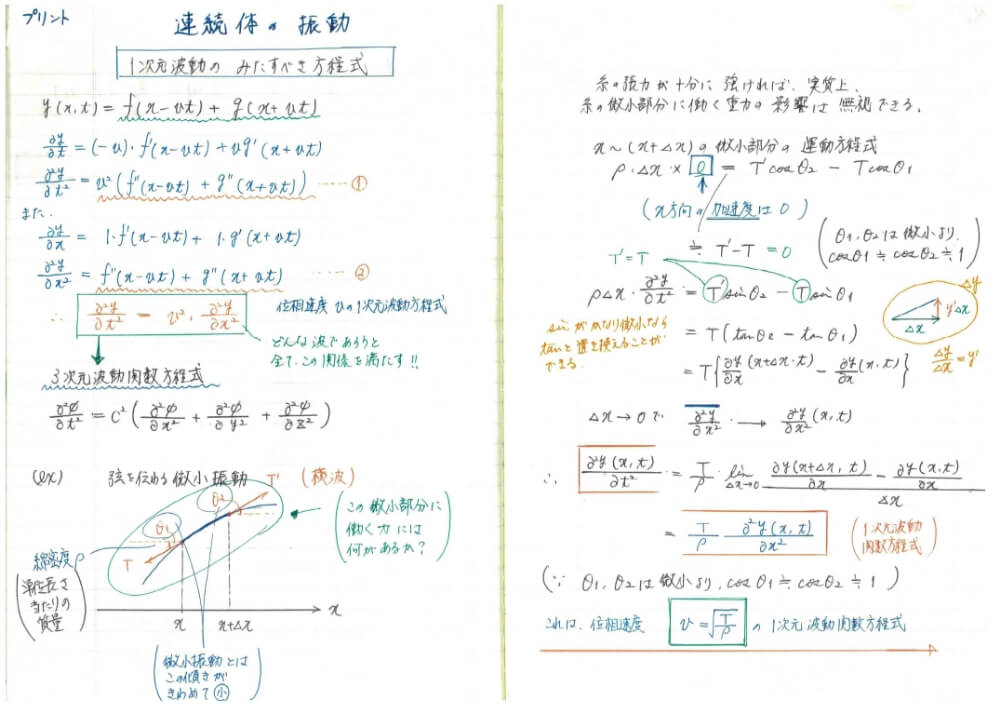 プリント
連続体の振動
1次元波動のみたすべき方程式
y(x,t) = f(x-vt) + g(x+vt)
∂y/∂t = (-v)・f'(x-vt) + vg'(x+vt)
∂²y/∂t² = v²(f''(x-vt) + g''(x+vt)) ……①
また、
∂y/∂x = 1・f'(x-vt) + 1・g'(x+vt)
∂²y/∂x² = f''(x-vt) + g''(x+vt) ……②
∴ ∂²y/∂t² = v²・∂²y/∂x² 位相速度 vの1次元波動方程式
どんな波であろうと
全て、この関係を満たす!!
3次元波動関数方程式
∂²φ/∂t² = C²(∂²φ/∂x² + ∂²φ/∂y² + ∂²φ/∂z²)
(ex) 弦を伝わる微小振動 (横波)
T'
θ2
θ1
T
(この微小部分に
働く力には
何があるか?)
線密度ρ
(単位長さ
当たりの
質量)
x x+Δx x
(微小振動とは
この傾きが
きわめて小)
糸の張力が十分に強ければ、実質上、
糸の微小部分に働く重力の影響は無視できる。
x~(x+Δx)の微小部分の運動方程式
ρ・Δx × 0 = T'cosθ2 - Tcosθ1
(x方向の加速度は0)
≒ T'-T = 0
(θ1,θ2は微小より、
cosθ1≒cosθ2≒1)
T'=T
ρΔx・∂²y/∂t² = T'sinθ2 - Tsinθ1
Δy
y'Δx
Δx
Δy/Δx = y'
sinがかなり微小なら
tanと置き換えることが
できる。
= T(tanθ2 - tanθ1)
= T{∂y/∂x(x+Δx・t) - ∂y/∂x(x・t)}
Δx→0で ∂²y/∂x² → ∂²y/∂x²(x,t)
∴ ∂²y(x,t)/∂t² = T/ρ・lim Δx→0 (∂y(x+Δx,t)/∂x - ∂y(x,t)/∂x)/Δx
= T/ρ ∂²y(x,t)/∂x² (1次元波動
関数方程式)
(∵ θ1,θ2は微小より、cosθ1≒cosθ2≒1)
これは、位相速度 v=√(T/ρ) の1次元波動関数方程式